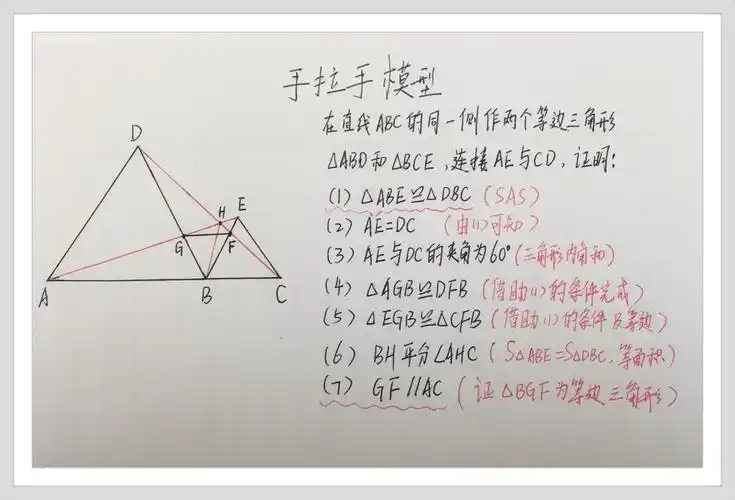 手拉手模型
在直线ABC的同一侧作两个等边三角形
△ABD和△BCE,连接AE与CD,证明:
(1) △ABE≌△DBC (SAS)
(2) AE=DC (由(1)可知)
(3) AE与DC的夹角为60° (三角形内角和)
(4) △AGB≌DFB (借助(1)的条件完成)
(5) △EGB≌△CFB (借助(1)的条件及等边)
(6) BH平分∠AHC (S△ABE=S△DBC,等面积)
(7) GF//AC (证△BGF为等边三角形)
D
H
E
G
F
A
B
C